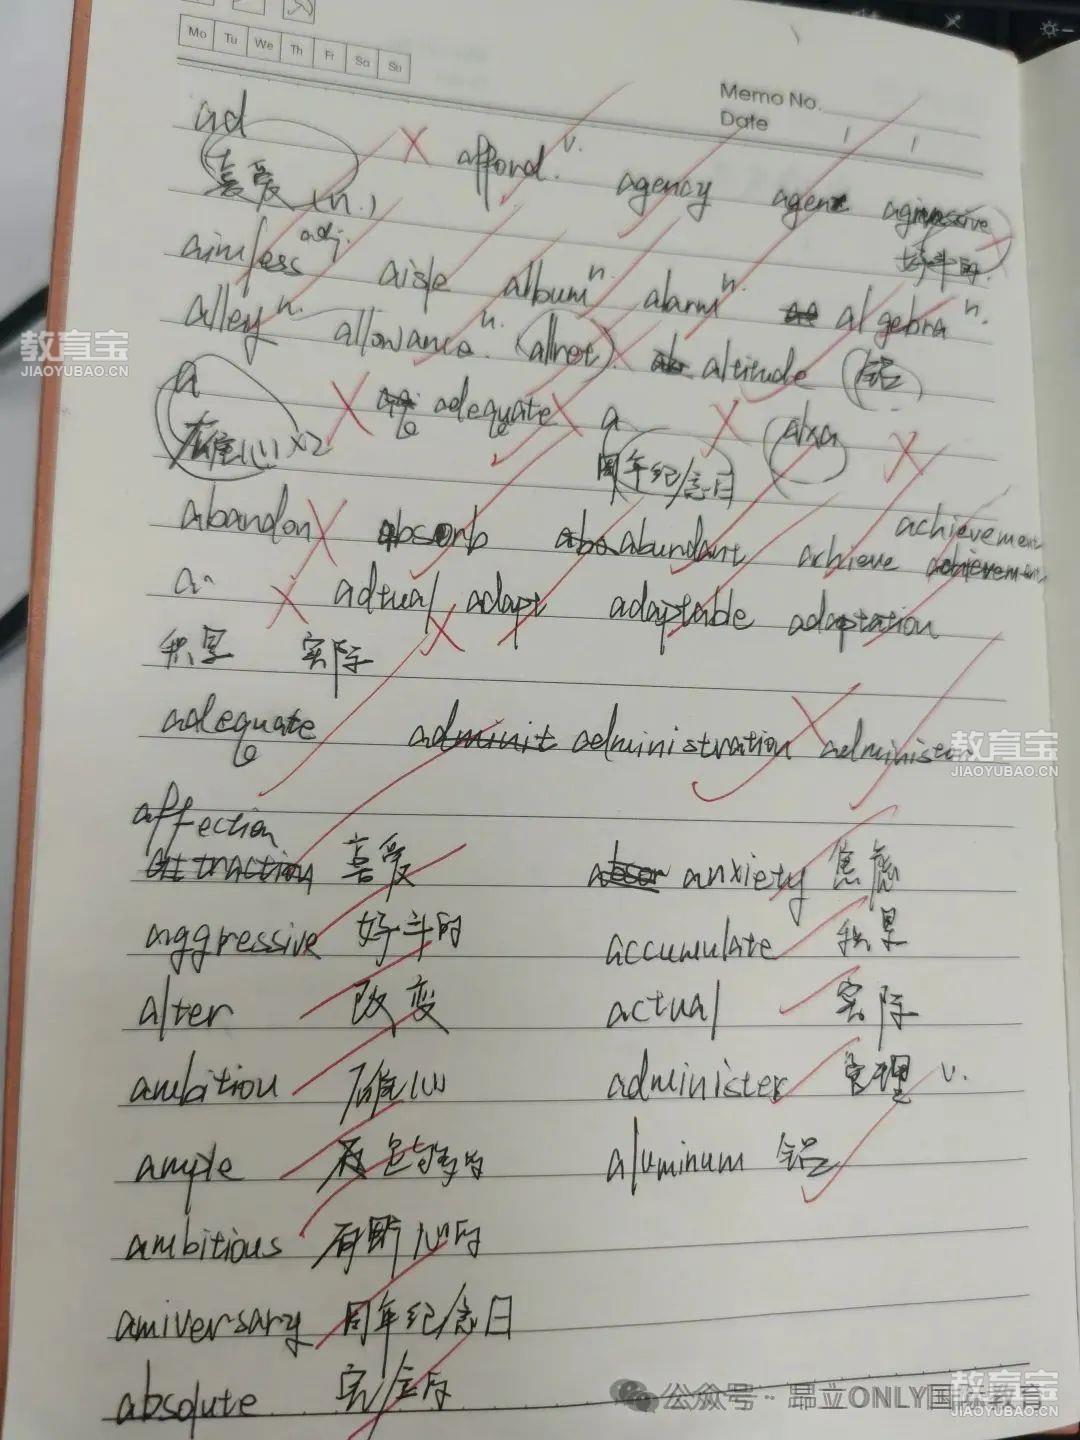 Mo Tu We Th Fr Sa Su
Memo No.
Date / /
ad afford. v. agency agent
喜爱 (n.) 好斗的.
aimless adj. aisle album n. alarm n. algebra n.
alley n. allowance n. (allot) altitude (铝)
a adequate a
雄心 x2 周年纪念日
abandon absorb abundant achieve achievement
a adtual adapt adaptable adaptation
积累 实际
adequate administration
affection 喜爱 anxiety 焦虑
aggressive 好斗的 accumulate 积累
alter 改变 actual 实际
ambition 雄心 administer 管理 v.
ample 足够的 aluminum 铝
ambitious 有雄心的
anniversary 周年纪念日
absolute 完全的
教育宝
JIAOYUBAO.CN
教育宝
JIAOYUBAO.CN
公众号 · 昂立ONLY国际教育
教育宝
JIAOYUBAO.CN